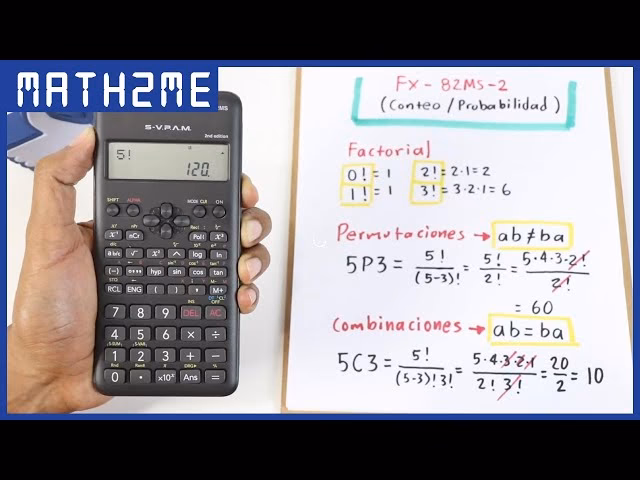 MATH2ME
MS
S-V.P.A.M.
2nd edition
5!
120.
SHIFT ALPHA MODE CLR ON
x⁻¹ nCr Pol( x³
a b/c √ x² ^ log ln
(-) °'" hyp sin cos tan
RCL ENG ( ) , M+
7 8 9 DEL AC
4 5 6 × ÷
1 2 3 + −
0 • ×10ˣ Ans =
FX - 82MS-2
(Conteo / Probabilidad)
Factorial
0! = 1 2! = 2·1 = 2
1! = 1 3! = 3·2·1 = 6
Permutaciones → ab ≠ ba
5P3 = 5!/(5-3)! = 5!/2! = 5·4·3·2!/2!
= 60
Combinaciones → ab = ba
5C3 = 5!/(5-3)!3! = 5·4·3·2·1/2!3! = 20/2 = 10